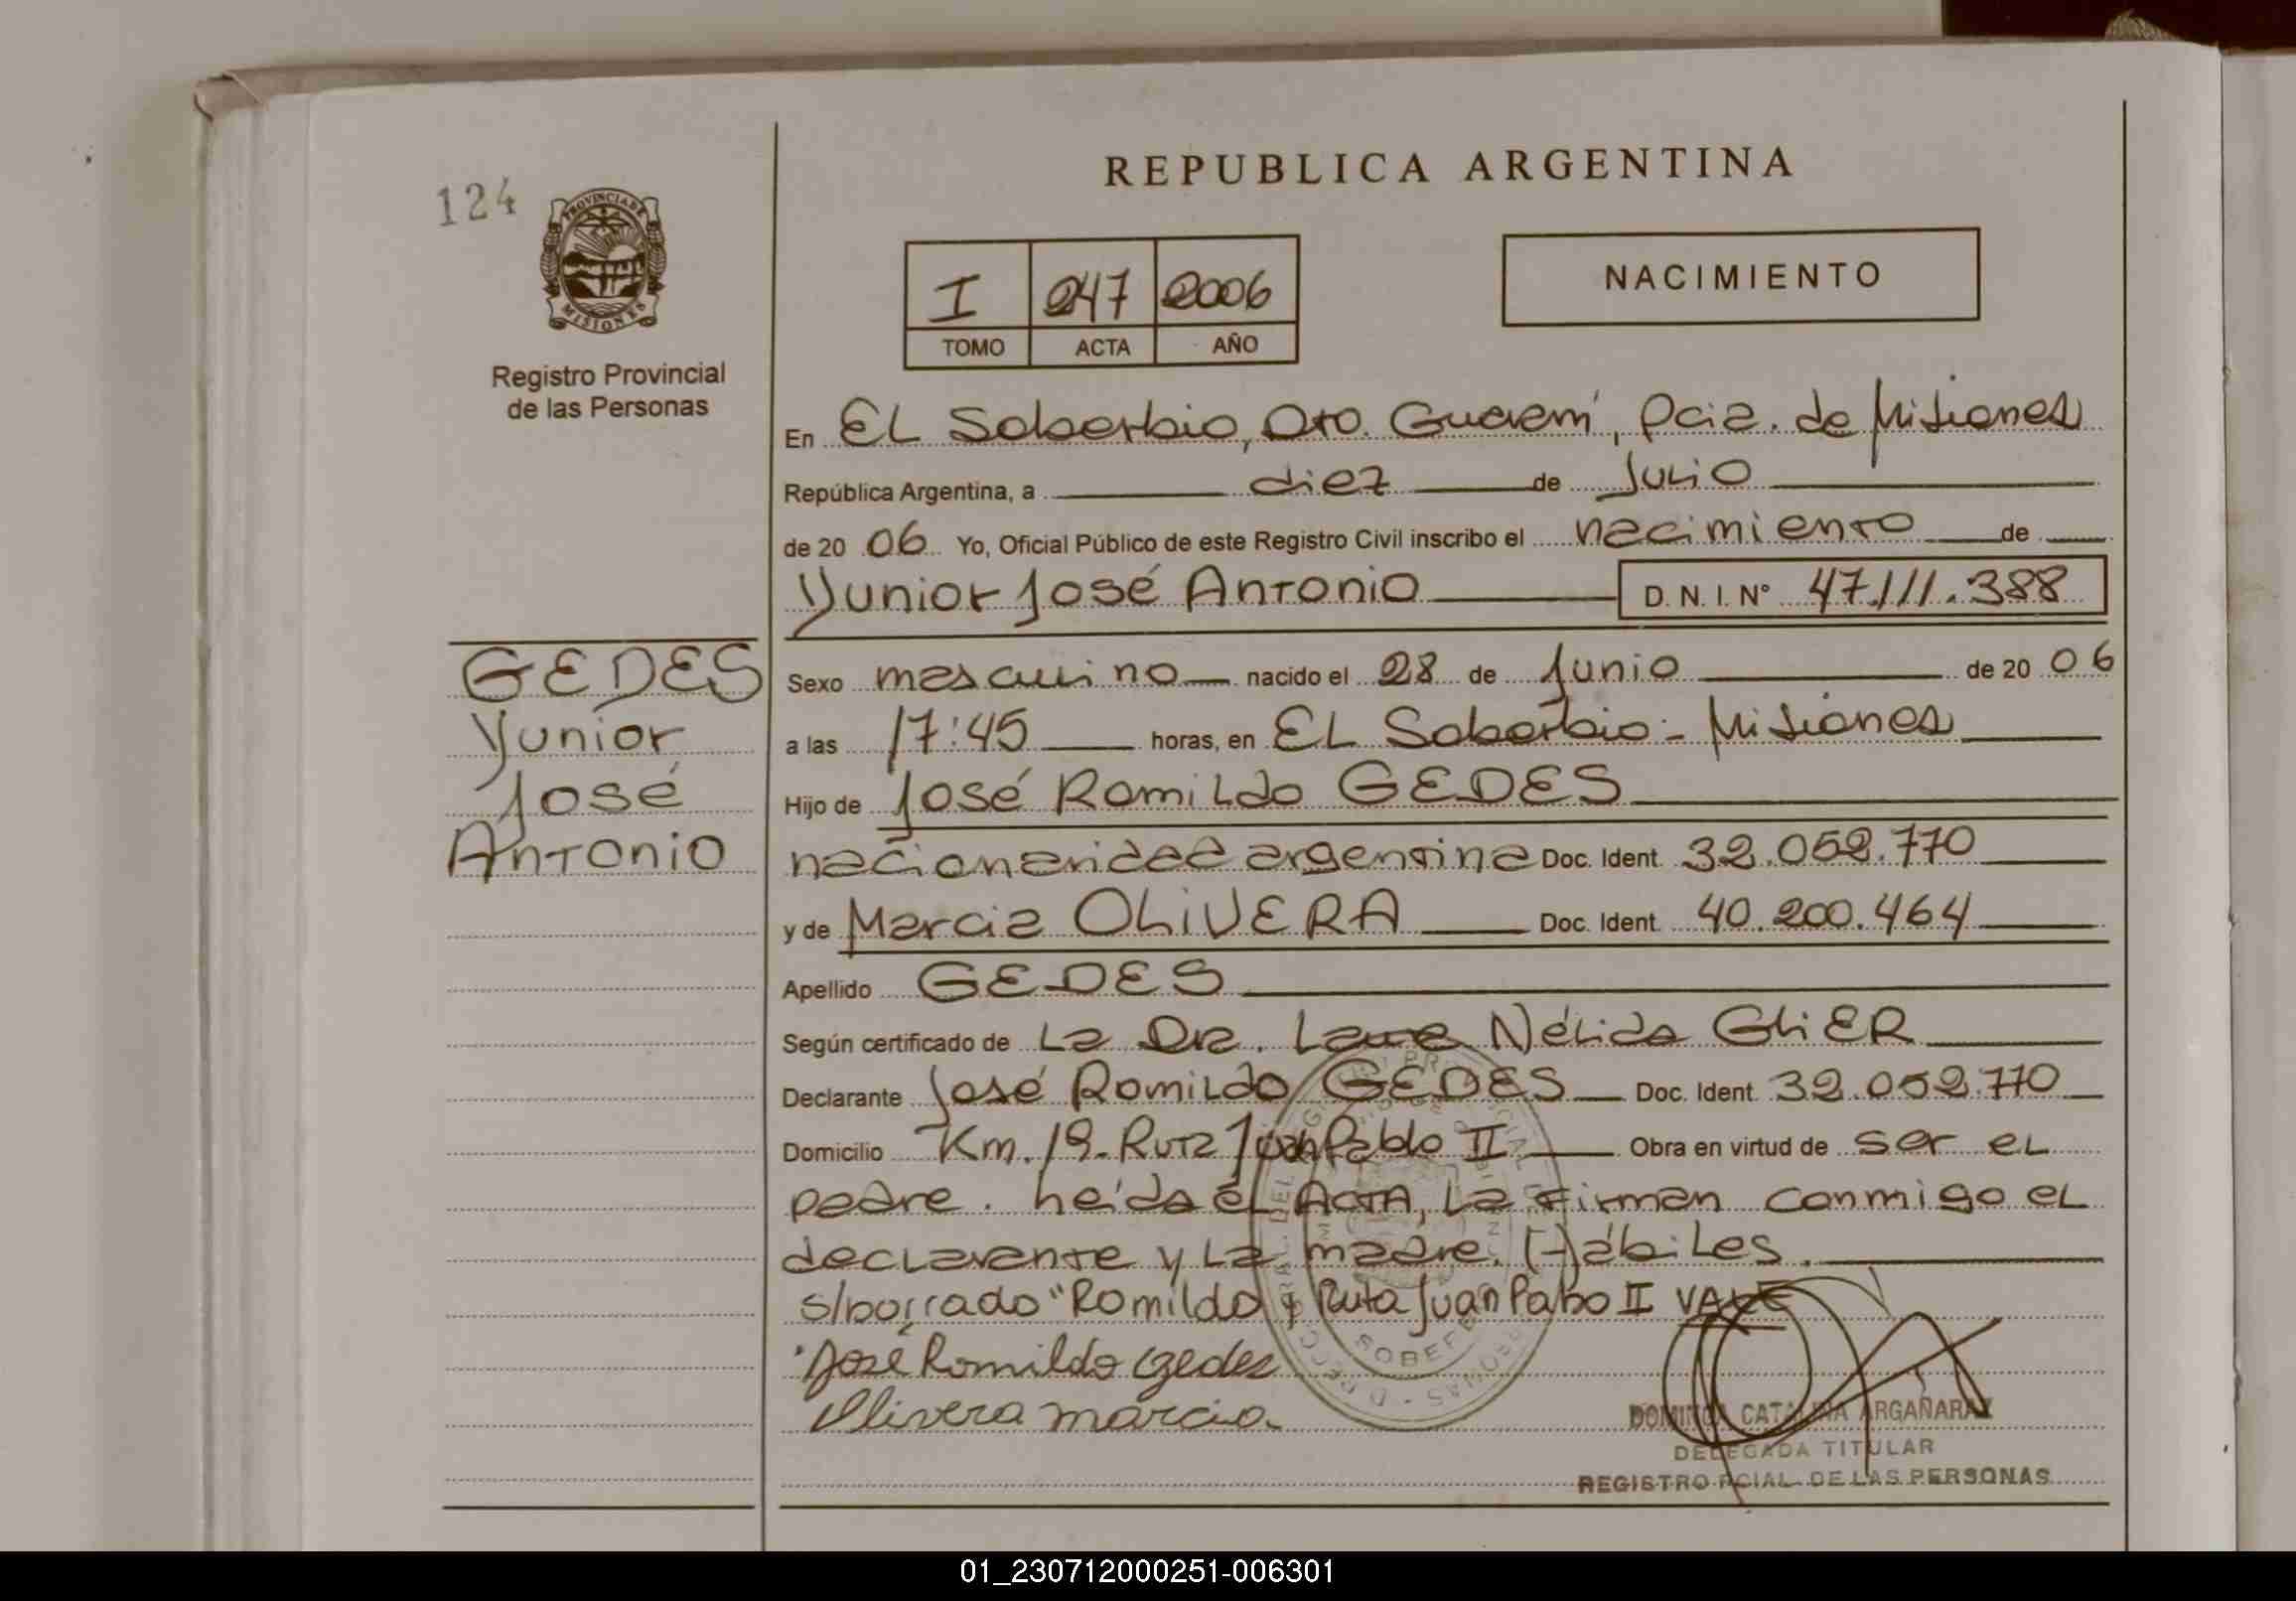 124
PROVINCIA DE
MISIONES
Registro Provincial
de las Personas
REPUBLICA ARGENTINA
I 247 2006
TOMO ACTA AÑO
NACIMIENTO
En EL Soberbio, Dto. Guaraní, Pcia. de Misiones
República Argentina, a diez de Julio
de 20 06 Yo, Oficial Público de este Registro Civil inscribo el nacimiento de
Yunior José Antonio D.N.I. Nº 47.111.388
GEDES
Yunior
José
Antonio
Sexo masculino nacido el 28 de Junio de 20 06
a las 17:45 horas, en EL Soberbio - Misiones
Hijo de José Romildo GEDES
nacionalidad argentina Doc. Ident. 32.052.770
y de Marcia OLIVERA Doc. Ident. 40.200.464
Apellido GEDES
Según certificado de La Dra. Laura Nélida GLIER
Declarante José Romildo GEDES Doc. Ident. 32.052.770
Domicilio Km. 19- Ruta Juan Pablo II Obra en virtud de ser el
padre. Leída el ACTA, La Firman conmigo el
declarante y La madre. Hábiles.
s/borrado "Romildo y Ruta Juan Pabo II VALE
José Romildo Gedes
Olivera marcia
DOMINGA CATALINA ARGAÑARAZ
DELEGADA TITULAR
REGISTRO PCIAL. DE LAS PERSONAS
01_230712000251-006301